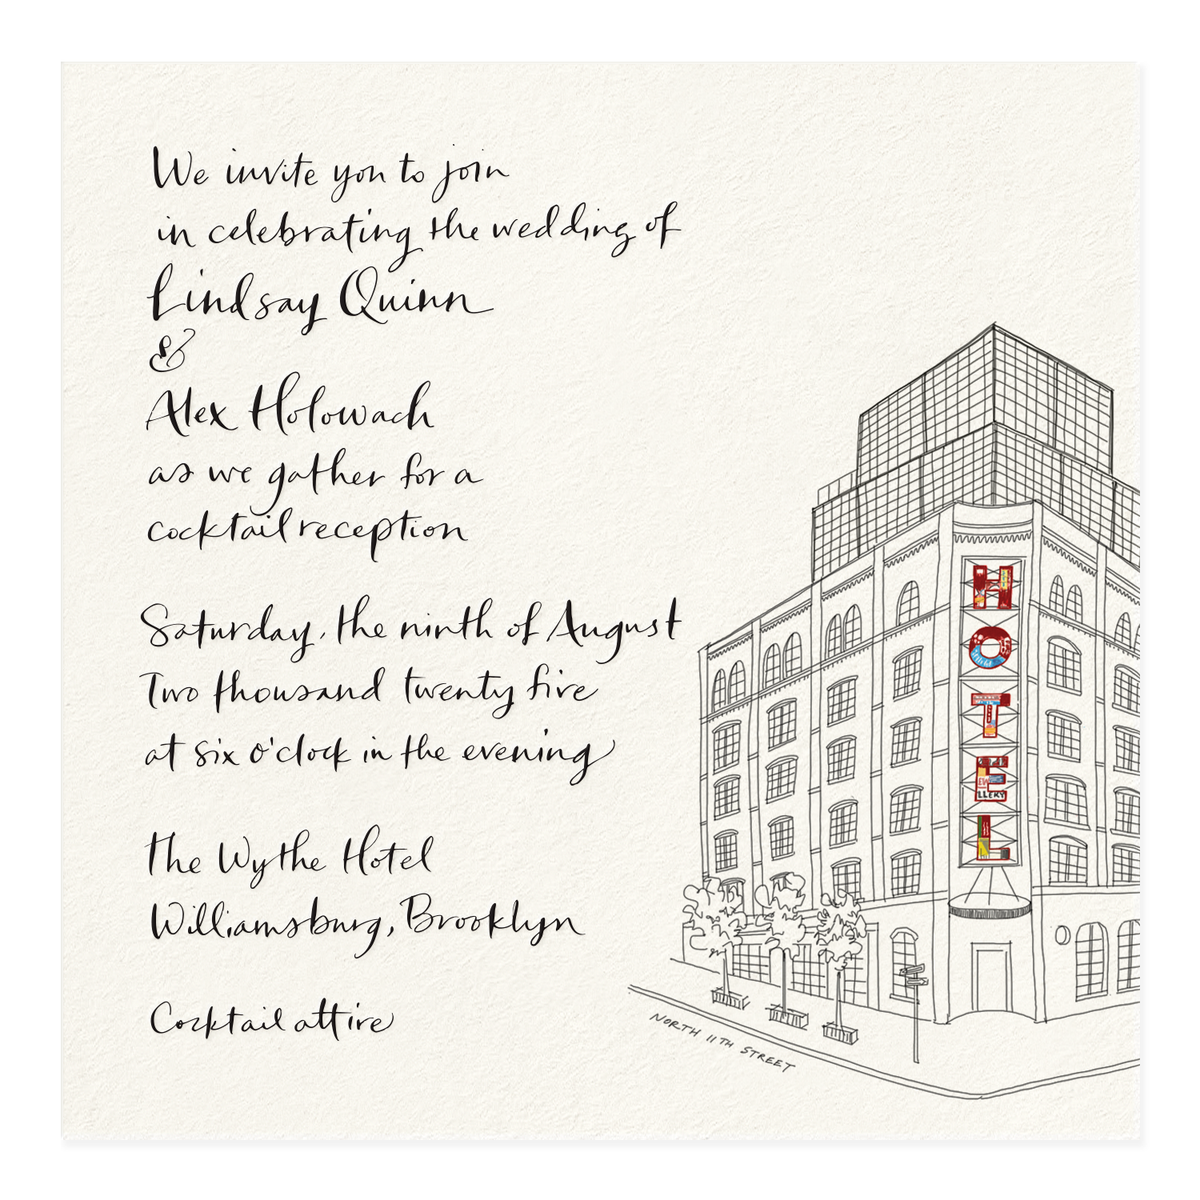 We invite you to join
in celebrating the wedding of
Lindsay Quinn
&
Alex Holowach
as we gather for a
cocktail reception
Saturday, the ninth of August
Two thousand twenty five
at six o'clock in the evening
the Wythe Hotel
Williamsburg, Brooklyn
Cocktail attire
HOTEL
NORTH 11TH STREET